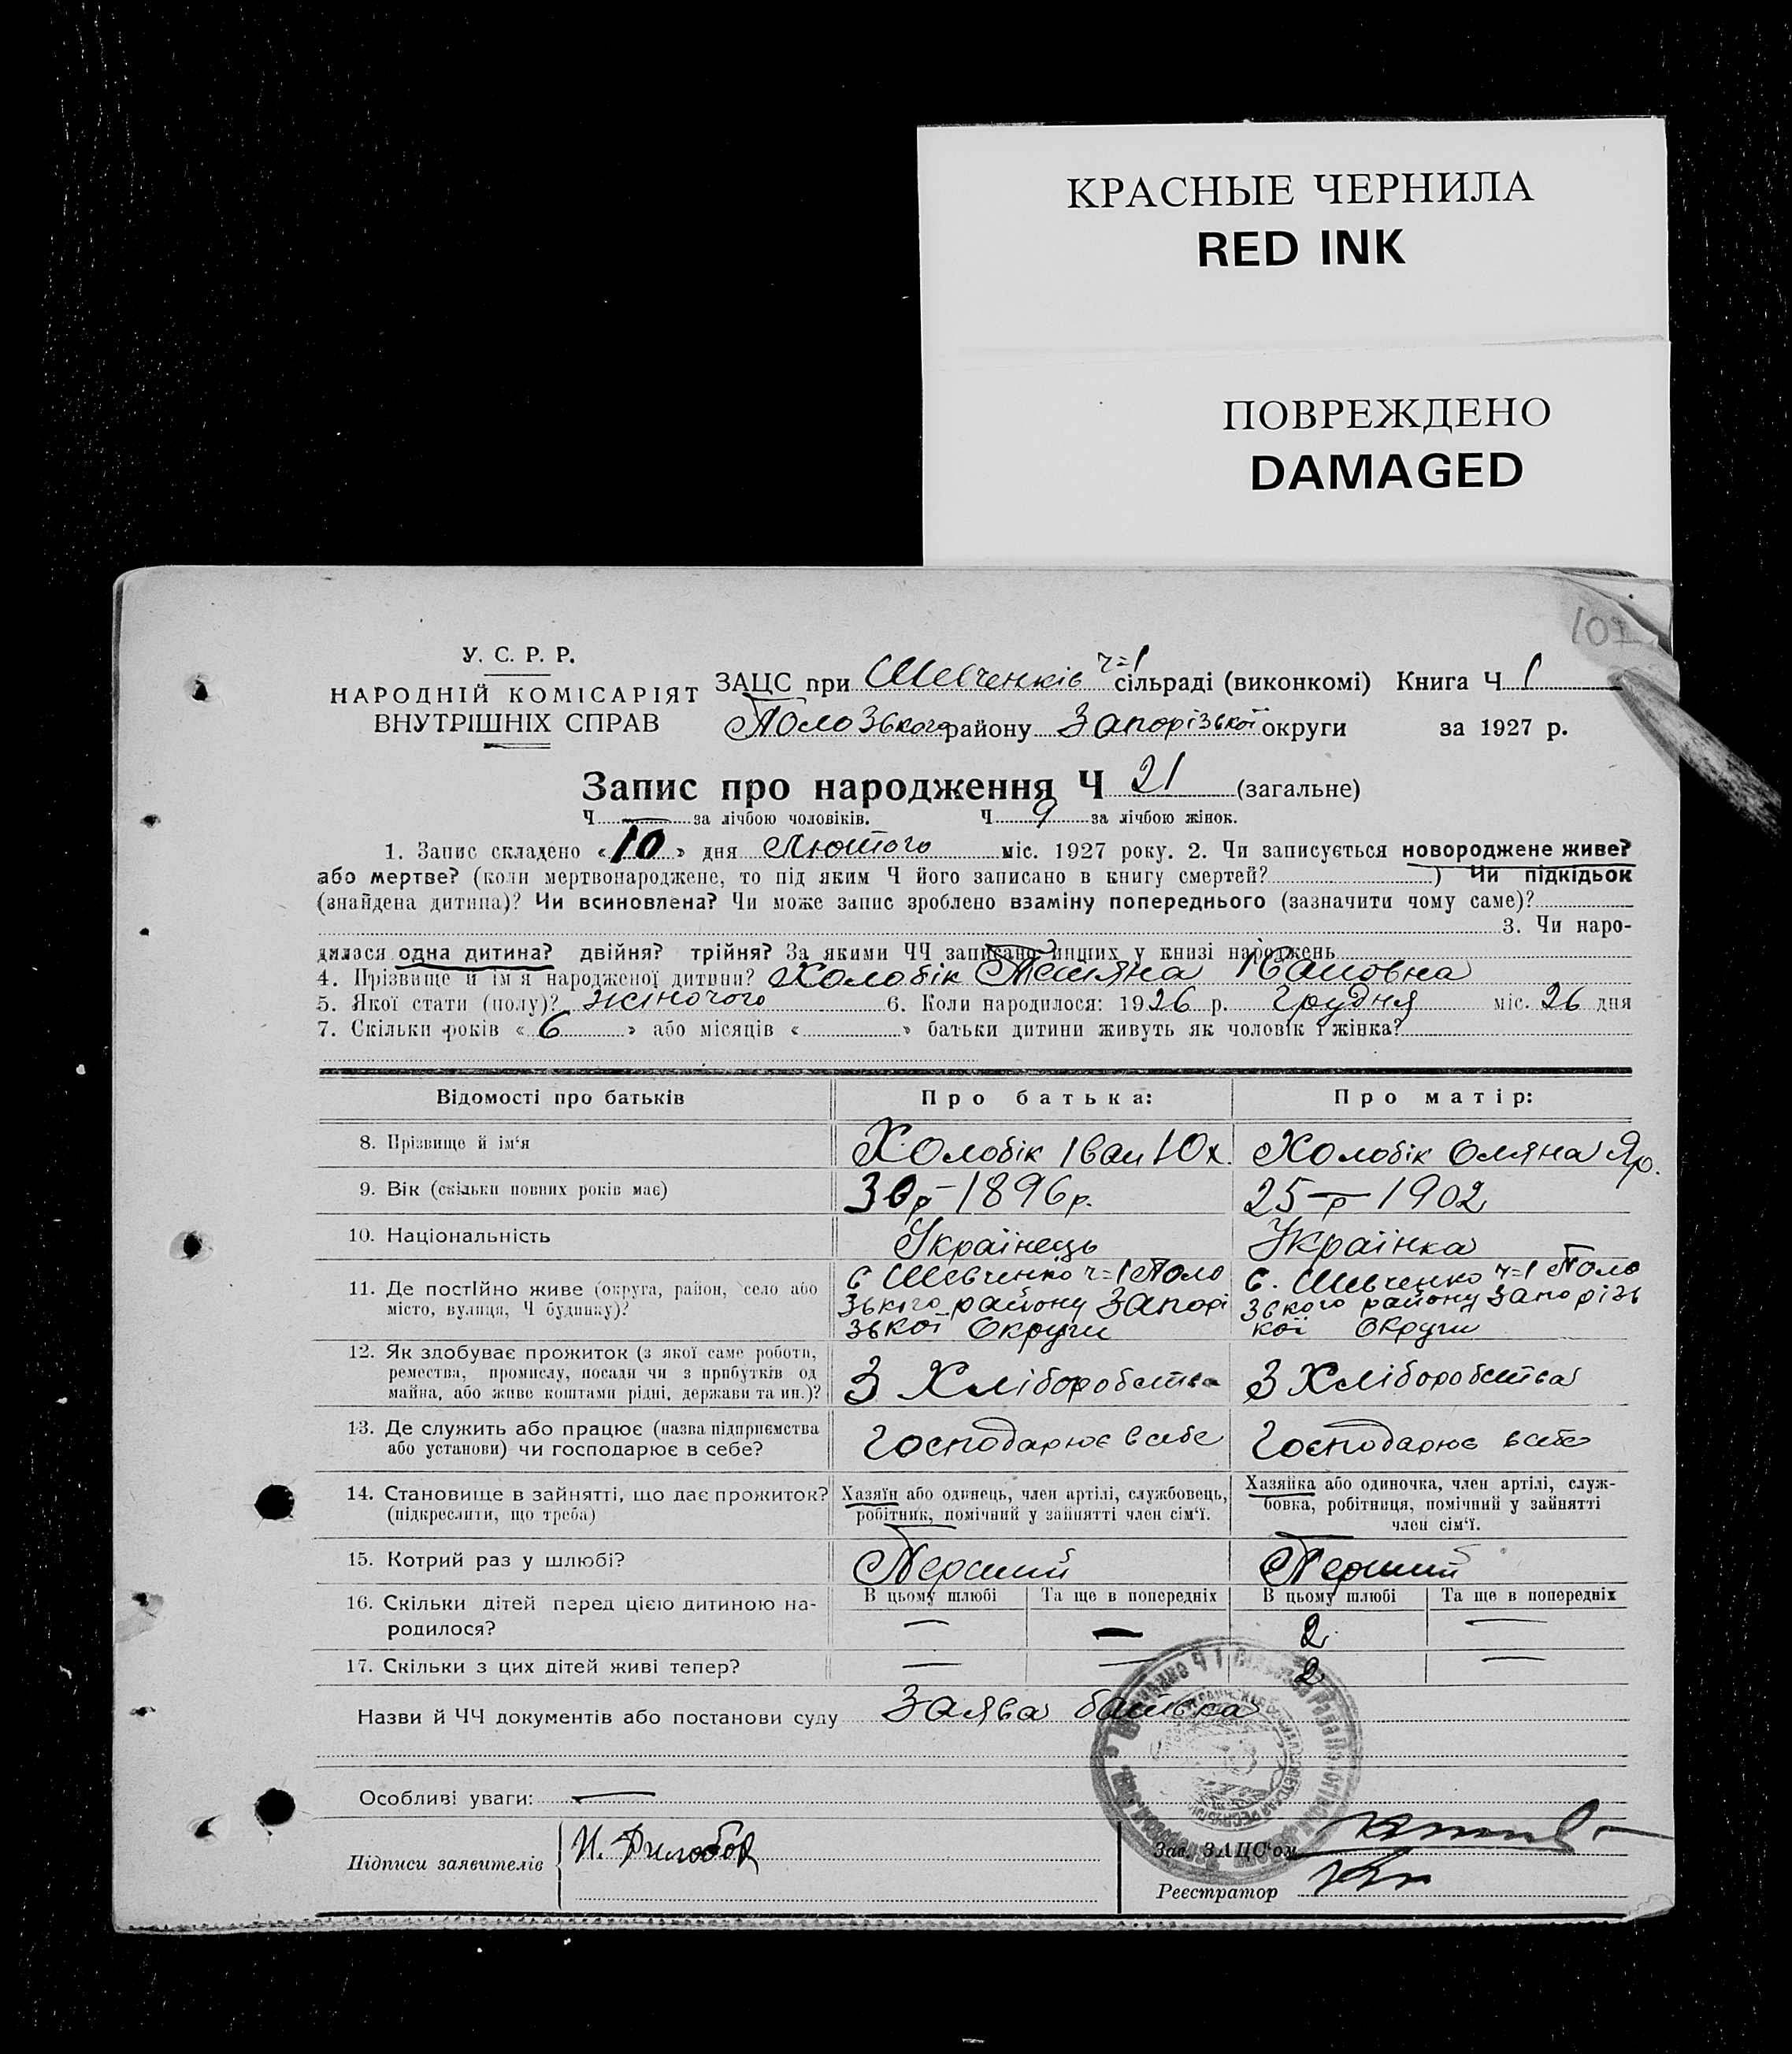 КРАСНЫЕ ЧЕРНИЛА
RED INK
ПОВРЕЖДЕНО
DAMAGED
107
У. С. Р. Р.
НАРОДНІЙ КОМІСАРІЯТ
ВНУТРІШНІХ СПРАВ
ЗАЦС при Шевченків ч=1 сільраді (виконкомі) Книга Ч 1
Пологівського району Запорізької округи за 1927 р.
Запис про народження Ч 21 (загальне)
Ч — за лічбою чоловіків. Ч 9 за лічбою жінок.
1. Запис складено «10» дня Лютого міс. 1927 року. 2. Чи записується новороджене живе?
або мертве? (коли мертвонароджене, то під яким Ч його записано в книгу смертей? ) Чи підкідьок
(знайдена дитина)? Чи всиновлена? Чи може запис зроблено взаміну попереднього (зазначити чому саме)?
3. Чи наро-
дилася одна дитина? двійня? трійня? За якими ЧЧ записано инших у книзі народжень
4. Прізвище й ім'я народженої дитини? Холобік Тетяна Івановна
5. Якої стати (полу)? жіночого 6. Коли народилося: 1926 р. Грудня міс. 26 дня
7. Скільки років «6» або місяців « » батьки дитини живуть як чоловік і жінка?
Відомості про батьків Про батька: Про матір:
8. Прізвище й ім'я Холобік Іван Юх. Холобік Оляна Яр.
9. Вік (скільки повних років має) 30 р – 1896 р. 25 – р 1902
10. Національність Українець Українка
11. Де постійно живе (округа, район, село або
місто, вулиця, Ч будинку)?
С Шевченко ч=1 Поло
зького району Запорі
зької Округи
с. Шевченко ч=1 Поло
зького району Запорізь
кої Округи
12. Як здобуває прожиток (з якої саме роботи,
ремества, промислу, посади чи з прибутків од
майна, або живе коштами рідні, держави та ин.)?
З Хліборобства З Хліборобства
13. Де служить або працює (назва підприємства
або установи) чи господарює в себе?
Господарює в себе Господарює в себе
14. Становище в зайнятті, що дає прожиток?
(підкреслити, що треба)
Хазяїн або одинець, член артілі, службовець,
робітник, помічний у зайнятті член сім'ї.
Хазяйка або одиночка, член артілі, служ-
бовка, робітниця, помічний у зайнятті
член сім'ї.
15. Котрий раз у шлюбі? Перший Перший
16. Скільки дітей перед цією дитиною на-
родилося?
В цьому шлюбі Та ще в попередніх В цьому шлюбі Та ще в попередніх
— — 2 —
17. Скільки з цих дітей живі тепер? — — 2 —
Назви й ЧЧ документів або постанови суду Заява батька
Особливі уваги: —
Підписи заявителів
Зав. ЗАЦС'ом
Реєстратор